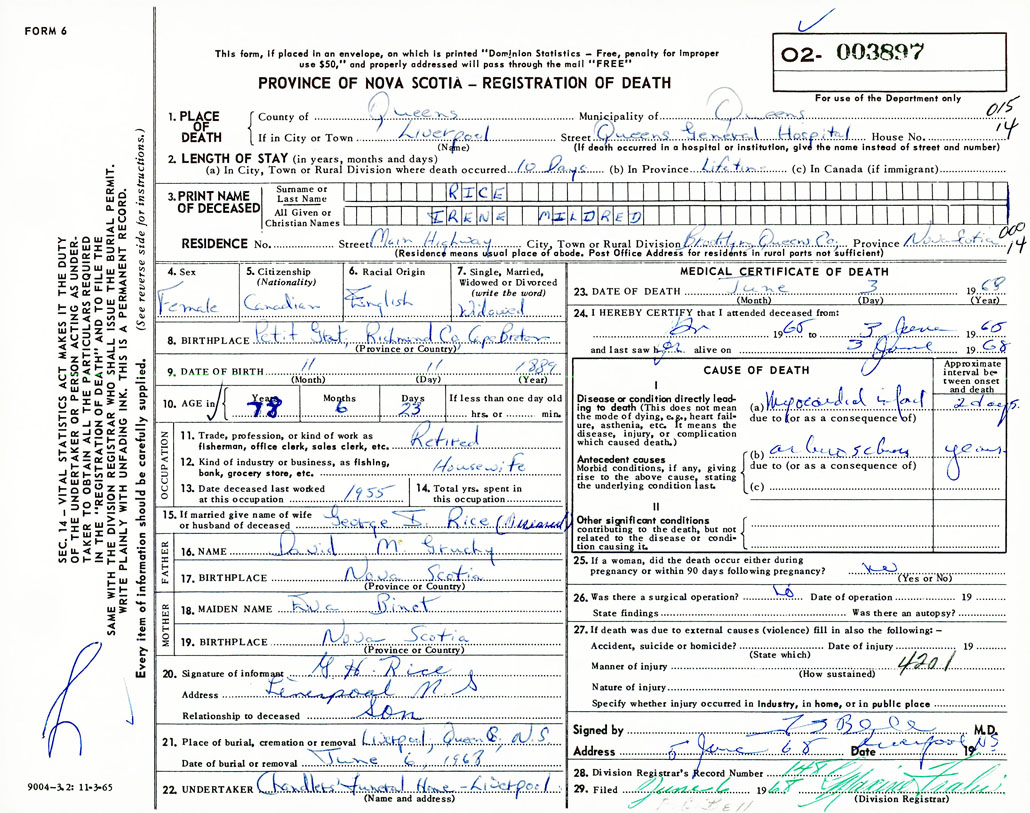 FORM 6
This form, if placed in an envelope, on which is printed "Dominion Statistics – Free, penalty for improper
use $50," and properly addressed will pass through the mail "FREE"
O2- 003897
PROVINCE OF NOVA SCOTIA – REGISTRATION OF DEATH
For use of the Department only
1. PLACE OF DEATH
County of Queens Municipality of Queens 015
If in City or Town Liverpool Street Queens General Hospital House No. 14
(Name) (If death occurred in a hospital or institution, give the name instead of street and number)
2. LENGTH OF STAY (in years, months and days)
(a) In City, Town or Rural Division where death occurred 10 Days (b) In Province Lifetime (c) In Canada (if immigrant)
3. PRINT NAME OF DECEASED
Surname or Last Name RICE
All Given or Christian Names IRENE MILDRED
000
RESIDENCE No. Street Main Highway City, Town or Rural Division Brooklyn Queens Co. Province Nova Scotia 14
(Residence means usual place of abode. Post Office Address for residents in rural parts not sufficient)
4. Sex
Female
5. Citizenship
(Nationality)
Canadian
6. Racial Origin
English
7. Single, Married,
Widowed or Divorced
(write the word)
Widowed
8. BIRTHPLACE Petit Grat, Richmond Co. Cape Breton
(Province or Country)
9. DATE OF BIRTH 11 11 1889
(Month) (Day) (Year)
10. AGE in
Years Months Days If less than one day old
78 6 23 hrs. or min.
OCCUPATION
11. Trade, profession, or kind of work as
fisherman, office clerk, sales clerk, etc. Retired
12. Kind of industry or business, as fishing,
bank, grocery store, etc. Housewife
13. Date deceased last worked
at this occupation 1955
14. Total yrs. spent in
this occupation
15. If married give name of wife
or husband of deceased George Rice (Deceased)
FATHER
16. NAME David M. Gruchy
17. BIRTHPLACE Nova Scotia
(Province or Country)
MOTHER
18. MAIDEN NAME Eva Binet
19. BIRTHPLACE Nova Scotia
(Province or Country)
20. Signature of informant G. H. Rice
Address Liverpool N S
Relationship to deceased Son
21. Place of burial, cremation or removal Liverpool, Queens, N.S
Date of burial or removal June 6, 1968
22. UNDERTAKER Chandlers Funeral Home - Liverpool
(Name and address)
MEDICAL CERTIFICATE OF DEATH
23. DATE OF DEATH June 3 1968
(Month) (Day) (Year)
24. I HEREBY CERTIFY that I attended deceased from:
1965 to 3 June 1968
and last saw her alive on 3 June 1968
CAUSE OF DEATH
Approximate
interval be-
tween onset
and death
I
Disease or condition directly lead-
ing to death (This does not mean
the mode of dying, e.g., heart fail-
ure, asthenia, etc. It means the
disease, injury, or complication
which caused death.)
(a) Myocardial infarct 2 days.
due to (or as a consequence of)
Antecedent causes
Morbid conditions, if any, giving
rise to the above cause, stating
the underlying condition last.
(b) years
due to (or as a consequence of)
(c)
II
Other significant conditions
contributing to the death, but not
related to the disease or condi-
tion causing it.
25. If a woman, did the death occur either during
pregnancy or within 90 days following pregnancy? no
(Yes or No)
26. Was there a surgical operation? no Date of operation 19
State findings Was there an autopsy?
27. If death was due to external causes (violence) fill in also the following: –
Accident, suicide or homicide? Date of injury 19
(State which)
Manner of injury 4201
(How sustained)
Nature of injury
Specify whether injury occurred in Industry, in home, or in public place
Signed by M.D.
Address 5 June 68 Date Liverpool NS 19
28. Division Registrar's Record Number 148
29. Filed June 6 1968
(Division Registrar)
SEC. 14 – VITAL STATISTICS ACT MAKES IT THE DUTY
OF THE UNDERTAKER OR PERSON ACTING AS UNDER-
TAKER TO OBTAIN ALL THE PARTICULARS REQUIRED
IN THE "REGISTRATION OF DEATH" AND TO FILE THE
SAME WITH THE DIVISION REGISTRAR WHO SHALL ISSUE THE BURIAL PERMIT.
WRITE PLAINLY WITH UNFADING INK. THIS IS A PERMANENT RECORD.
Every item of information should be carefully supplied. (See reverse side for instructions.)
9004-3.2: 11-3-65